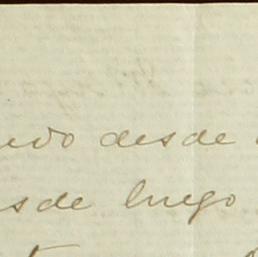 edo desde
sde luego